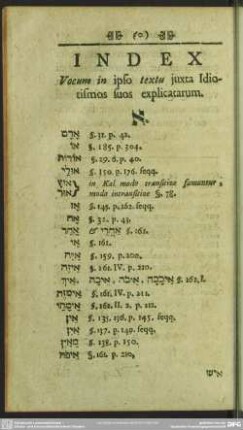 (o)
INDEX
Vocum in ipso textu juxta Idio-
tismos suos explicatarum.
א.
אָדָם §. 31. p. 42.
אוֹ §. 185. p. 304.
אוֹדוֹת §. 29. 6. p. 40.
אוּלַי §. 150. p. 176. seqq.
in Kal modo transitive sumuntur,
אוֹר modo intransitive §. 78.
אָז §. 145. p. 162. seqq.
אָח §. 31. p. 43.
אַחַר אַחֲרֵי §. 162.
אִי §. 161.
אַיֵּה §. 159. p. 200.
אֵיזֶה §. 161. IV. p. 210.
אֵיךְ, אֵיכָה, אֵיכֹה, אֵיכָכָה §. 162. I.
§. 161. IV. p. 211.
§. 162. II. 2. p. 212.
אֵין §. 135. 136. p. 145. seqq.
אַיִן §. 137. p. 149. seqq.
מֵאַיִן §. 138. p. 150.
אֵיפֹה §. 161. p. 210.
איש